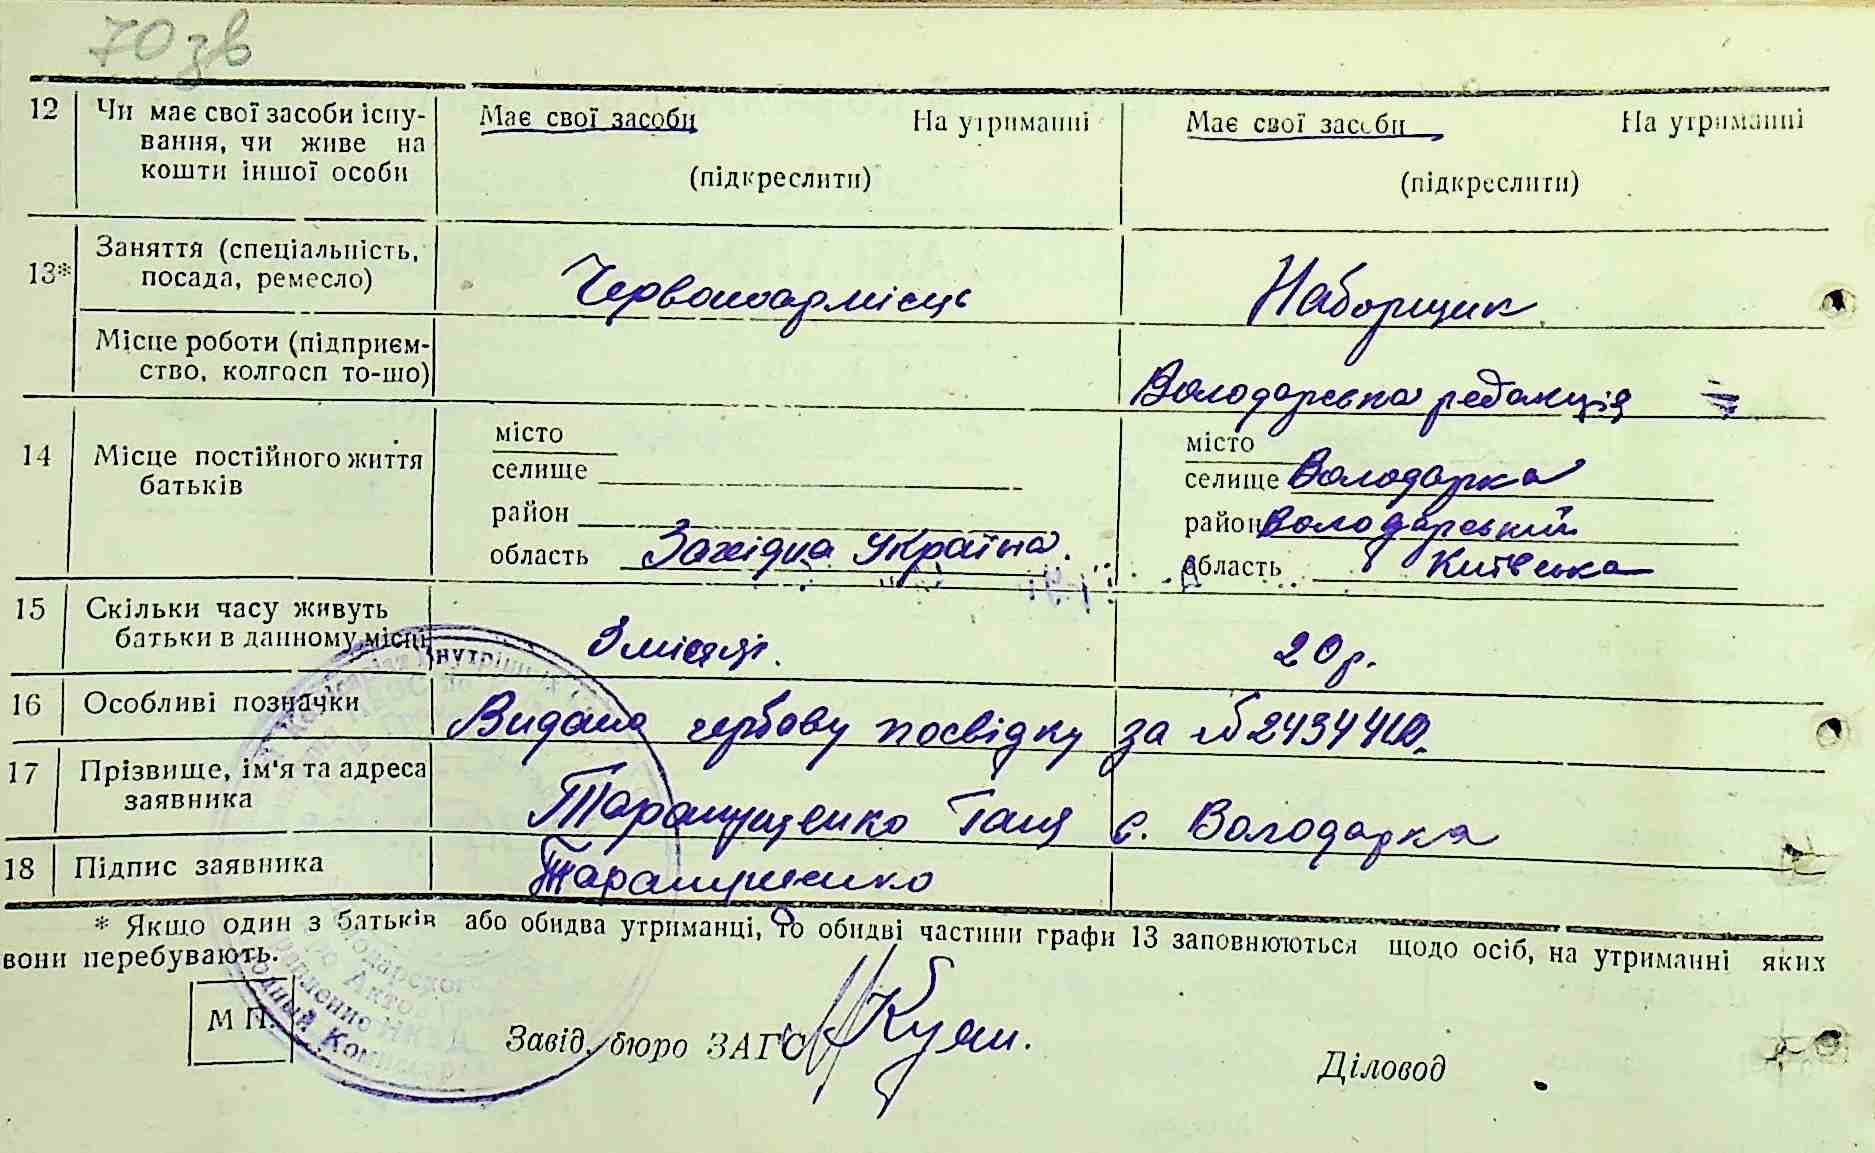 70зв
12 Чи має свої засоби існу- Має свої засоби На утриманні Має свої засоби На утриманні
вання, чи живе на
кошти іншої особи (підкреслити) (підкреслити)
13* Заняття (спеціальність, посада, ремесло) Червоноармієць Наборщик
Місце роботи (підприєм-
ство, колгосп то-що) Володарська редакція
14 Місце постійного життя батьків
місто місто
селище селище Володарка
район район Володарський
область Західна Україна. область Київська
15 Скільки часу живуть
батьки в данному місці 3 місяці. 20 р.
16 Особливі позначки Видано гербову посвідку за №
17 Прізвище, ім'я та адреса
заявника Таранущенко Таня с. Володарка
18 Підпис заявника Таранущенко
* Якщо один з батьків або обидва утриманці, то обидві частини графи 13 заповнюються щодо осіб, на утриманні яких
вони перебувають.
М П. Завід. бюро ЗАГС Діловод